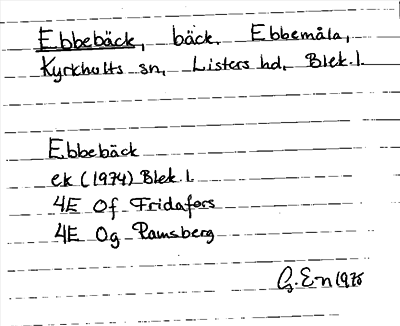 Ebbebäck, bäck. Ebbemåla,
Kyrkhults sn, Listers hd, Blek. l.
Ebbebäck
ek (1974) Blek. l.
4E Of Fridafors
4E Og Ramsberg
G. En 1975